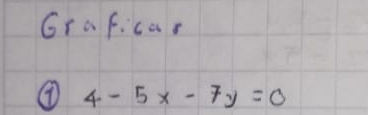 Graficar
① 4 - 5x - 7y = 0